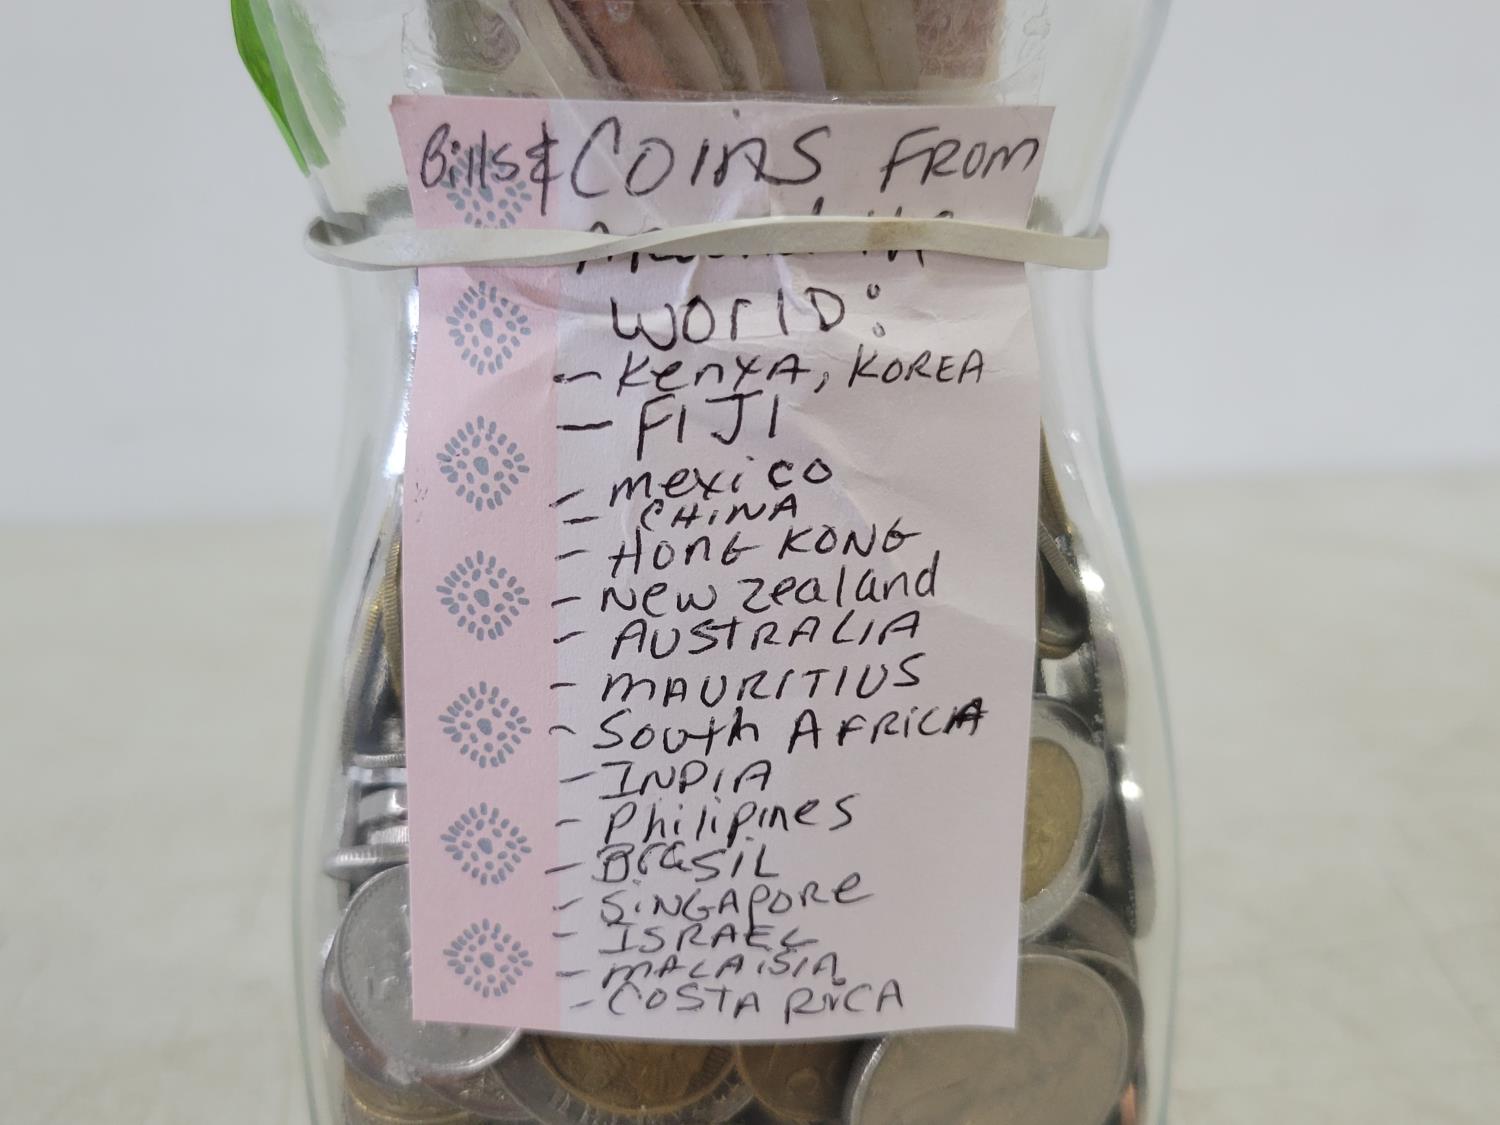 Bills & COINS FROM
WORLD:
- KENYA, KOREA
- FIJI
- mexico
- CHINA
- HONG KONG
- New Zealand
- AUSTRALIA
- MAURITIUS
- South AFRICA
- INDIA
- Philipines
- BRASIL
- SINGAPORE
- ISRAEL
- MALAISIA
- COSTA RICA